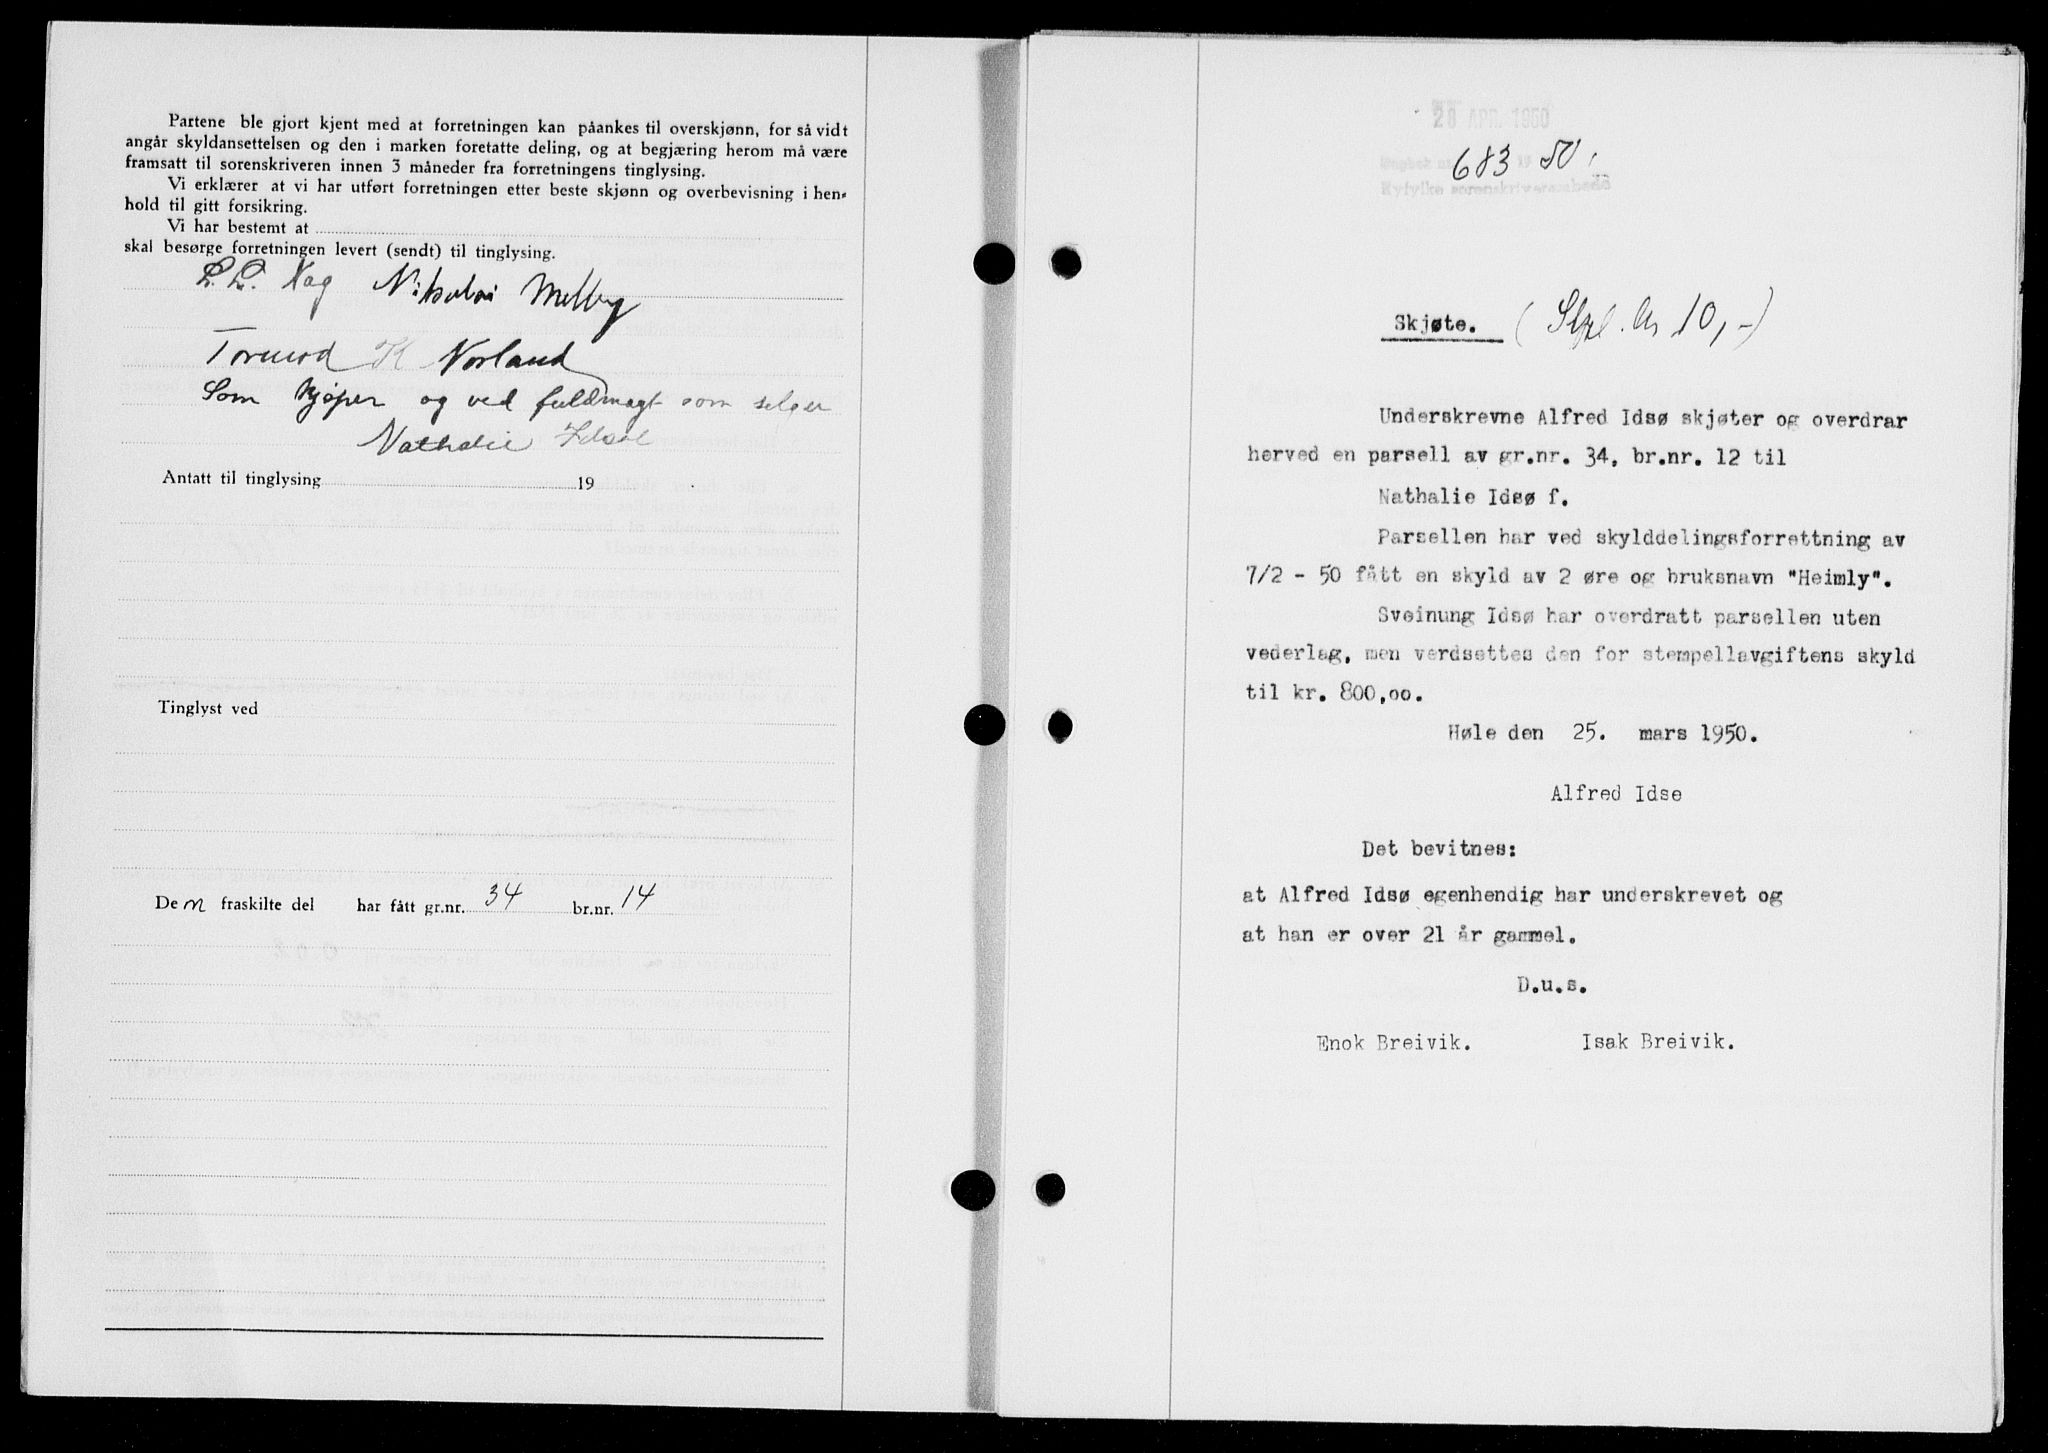 Partene ble gjort kjent med at forretningen kan påankes til overskjønn, for så vidt
angår skyldansettelsen og den i marken foretatte deling, og at begjæring herom må være
framsatt til sorenskriveren innen 3 måneder fra forretningens tinglysing.
Vi erklærer at vi har utført forretningen etter beste skjønn og overbevisning i hen-
hold til gitt forsikring.
Vi har bestemt at
skal besørge forretningen levert (sendt) til tinglysing.
L. L. Nag Nikolai Melberg
Tormod K Norland
Som kjøper og ved fuldmagt som selger
Nathalie Idsøe
Antatt til tinglysing 19
Tinglyst ved
Den fraskilte del har fått gr.nr. 34 br.nr. 14
28 APR. 1950
683 50
Ryfylke sorenskriverembede
Skjøte. (Stpl. kr 10,-)
Underskrevne Alfred Idsø skjøter og overdrar
herved en parsell av gr.nr. 34, br.nr. 12 til
Nathalie Idsø f.
Parsellen har ved skylddelingsforrettning av
7/2 - 50 fått en skyld av 2 øre og bruksnavn "Heimly".
Sveinung Idsø har overdratt parsellen uten
vederlag, men verdsettes den for stempellavgiftens skyld
til kr. 800,oo.
Høle den 25. mars 1950.
Alfred Idse
Det bevitnes:
at Alfred Idsø egenhendig har underskrevet og
at han er over 21 år gammel.
D.u.s.
Enok Breivik. Isak Breivik.